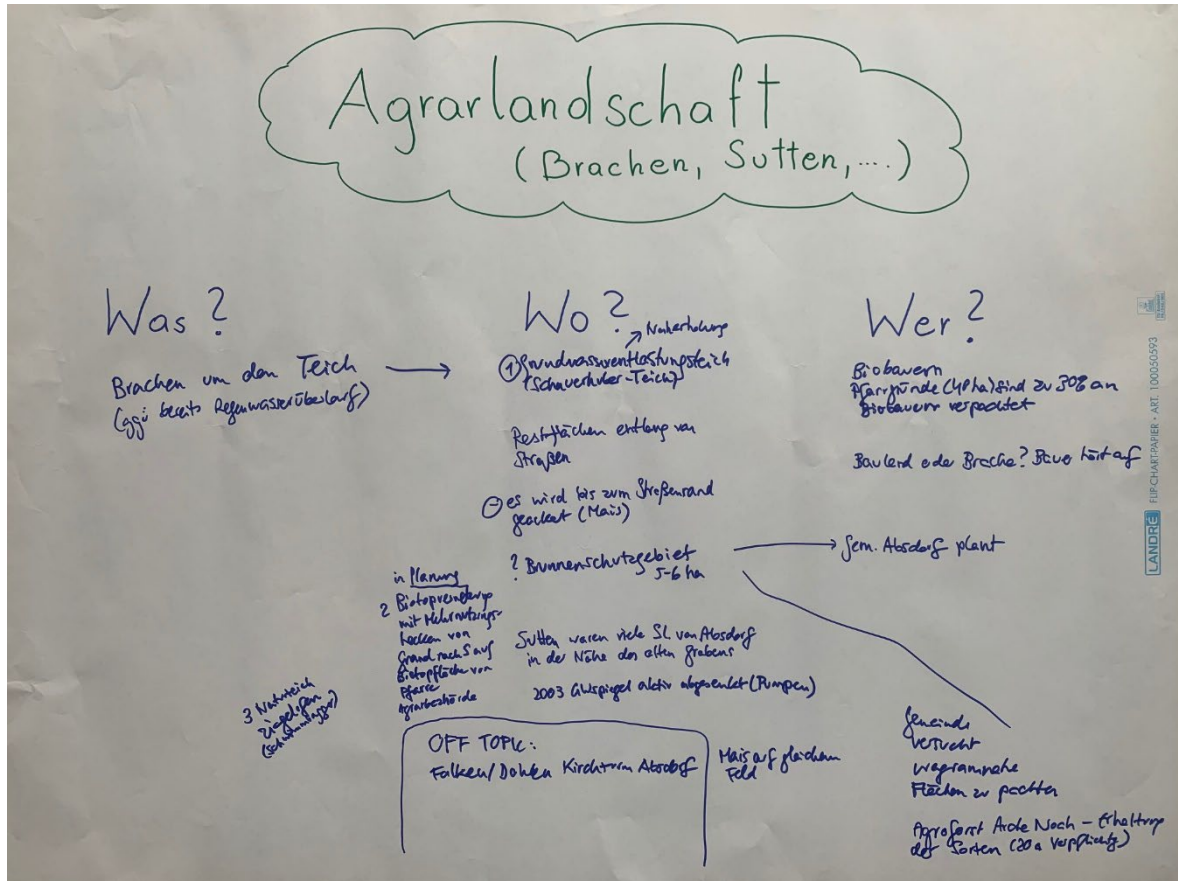 Agrarlandschaft
(Brachen, Sutten,....)
Was?
Brachen um den Teich
(ggü bereits Regenwasserüberlauf)
Wo?
Naherholung
① Grundwasserentlastungsteich
(Schauerhuber-Teich)
Restflächen entlang von
Straßen
⊖ es wird bis zum Straßenrand
geackert (Mais)
? Brunnenschutzgebiet
5-6 ha
in Planung
2 Biotopvernetzung
mit Mehrnutzungs-
hecken von
Grand nach S auf
Biotopfläche von
Pfarre
Agrarbehörde
Sutten waren viele SL von Absdorf
in der Nähe des alten Grabens
2003 GWspiegel aktiv abgesenkt (Pumpen)
3 Naturteich
(Schwemmlager)
OFF TOPIC:
Falken/Dohlen Kirchturm Absdorf
Mais auf gleichem
Feld
Wer?
Biobauern
Pfarrgründe (40 ha) sind zu 30% an
Biobauern verpachtet
Bauland oder Brache? Bauer hört auf
Gem. Absdorf plant
Gemeinde
versucht
wagramnahe
Flächen zu pachten
Agroforst Arche Noah – Erhaltung
der Sorten (20a Verpflichtg)
LANDRÉ FLIPCHART-PAPIER • ART. 100050593